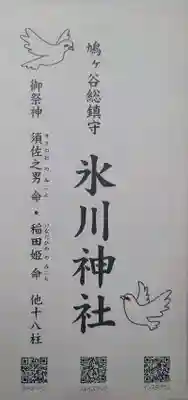 鳩ヶ谷総鎮守
氷川神社
御祭神 須佐之男命・稲田姫命 他十八柱